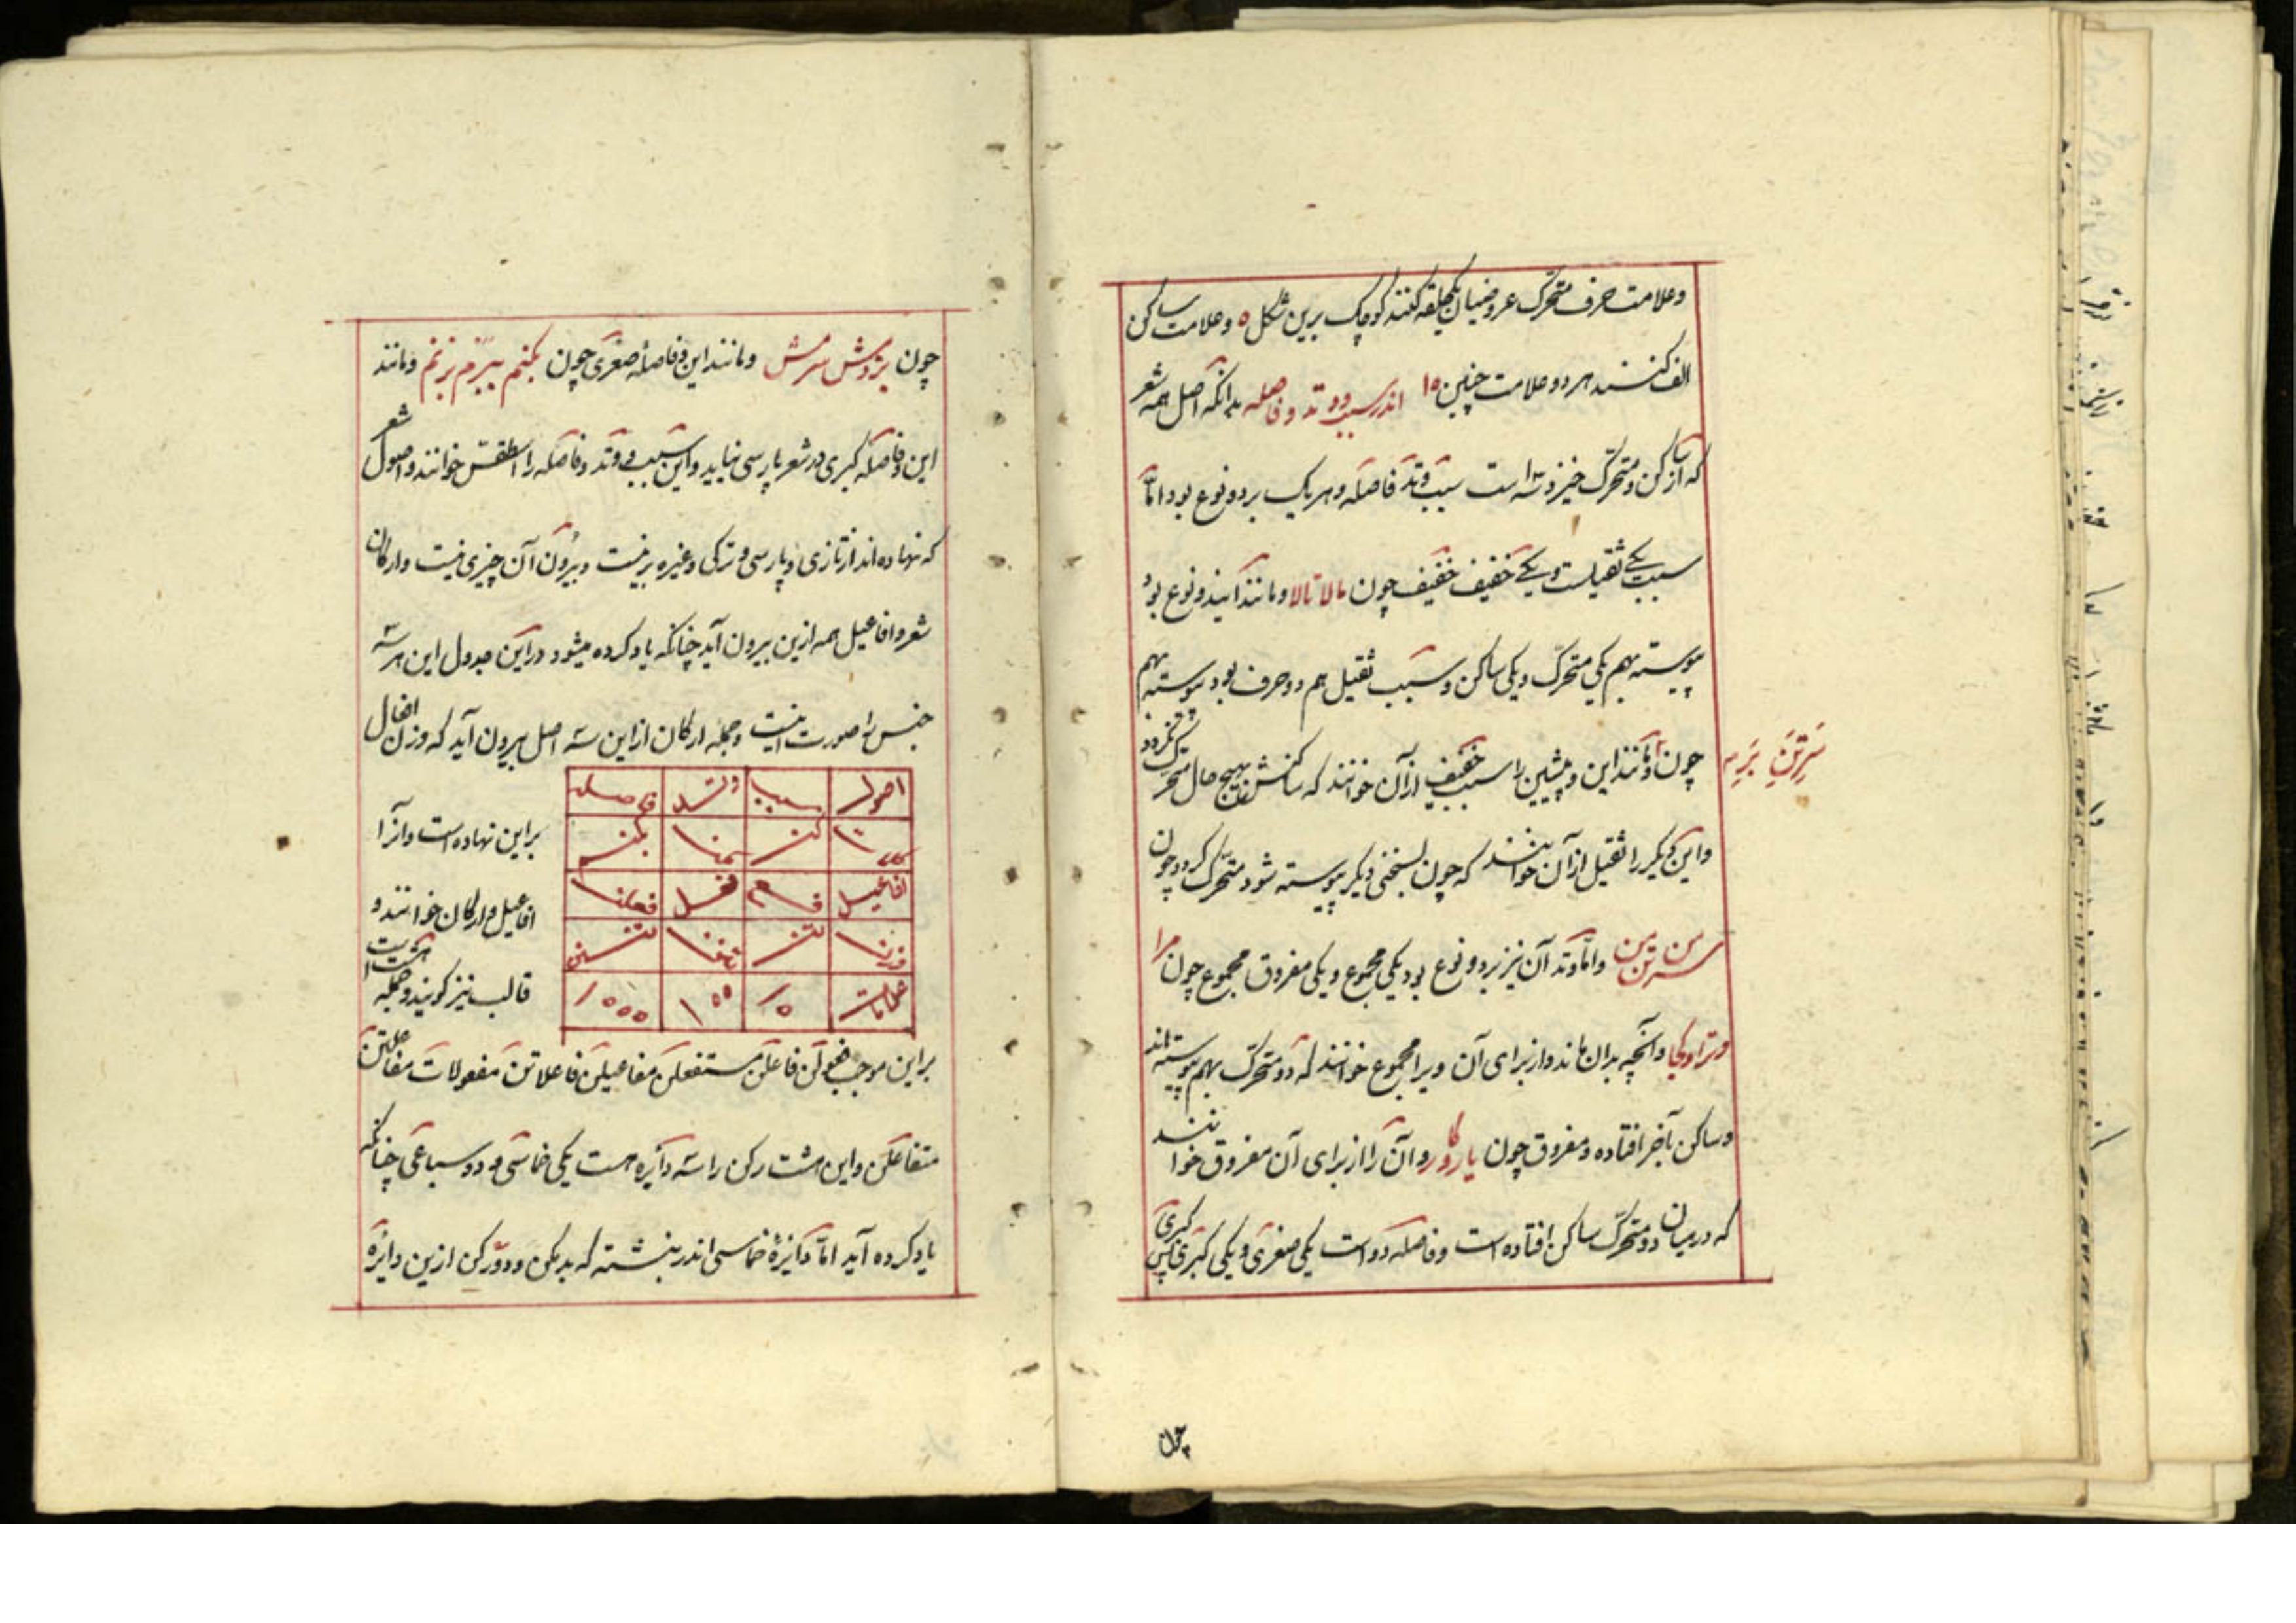 وعلامت حرف متحرک عروضیان یکحلقه کنند کوچک برین شکل ه وعلامت ساکن
الف کنند هر دو علامت چنین ه۱ اندر سبب و وتد و فاصله بدانکه اصل همه شعر
که از ساکن و متحرک خیزد سه است سبب وتد فاصله وهر یک بر دو نوع بود امّا
سبب یکی ثقیلست و یکی خفیف خفیف چون مالا تالا و مانند
پیوسته بهم یکی متحرک و یکی ساکن و سبب ثقیل هم دو حرف بود پیوسته بهم
چون و مانند این و پیشین را سبب خفیف از آن خوانند که ساکنش بهیچ حال متحرک نگردد
سَرِتَنِ بَرِ
واین دیگر را ثقیل از آن خوانند که چون بسخنی دیکر پیوسته شود متحرک گردد چون
سر من تن من وامّا وتد آن نیز بر دو نوع بود یکی مجموع و یکی مفروق مجموع چون مرا
وترا و کجا و آنچه بدان ماند و از برای آن ویرا مجموع خوانند که دو متحرک بهم پیوسته اند
وساکن بآخر افتاده و مفروق چون وآن را از برای آن مفروق خوانند
که در میان دو متحرک ساکن افتاده است وفاصله دو است یکی صغری و یکی کبری پس کبری
چون
چون بزدش سرمش ومانند این وفاصلهٔ صغری چون بکنم ببرم بزنم ومانند
این وفاصله کبری در شعر پارسی نیاید واین سبب و وتد وفاصله را اسطقس خوانند واصول شعر
که نهاده اند از تازی و پارسی و ترکی وغیره برینست وبیرون آن چیزی نیست وارکان
شعر وافاعیل همه ازین بیرون آید چنانکه یاد کرده میشود دراین جدول این هر سه
جنس را صورت اینست وجمله ارکان از این سه اصل بیرون آید که وزن افعال
اصول سبب وتد فاصله
بر این نهاده است وآنرا
افاعیل
افاعیل و ارکان خوانند و
وزن تن تنن
قالب نیز کویند وجمله هشت است
علامات ه۱ ه ه۱ ه ه ه۱
براین موجب فعولن فاعلن مستفعلن مفاعیلن فاعلاتن مفعولات مفاعلتن
متفاعلن واین هشت رکن را سه دایره هست یکی خماسی و دو سباعی چنانکه
یاد کرده آید امّا دایرهٔ خماسی اندر نبشته که بدیگن و دو رکن ازین دایره